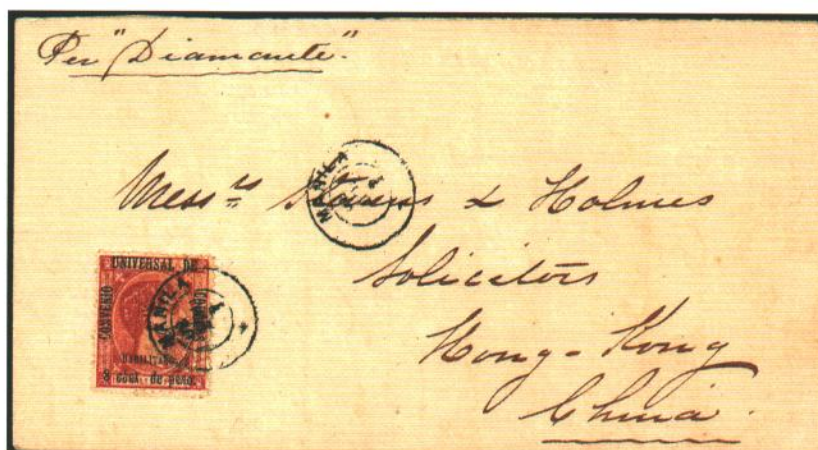 Per "Diamante".
MANILA
Mess.rs Stevens & Holmes
Solicitors
Hong-Kong
China.
CONVENIO UNIVERSAL DE CORREOS
HABILITADO
8 CENT. DE PESO.
MANILA